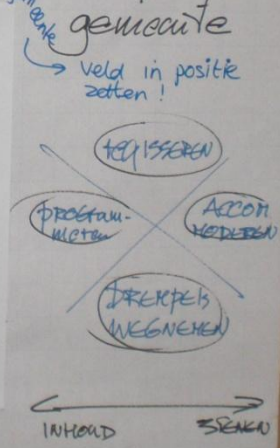 gemeente
veld in positie
zetten !
regisseren
program-
meren
Accom
moderen
Drempels
wegnemen
Inhoud
Stenen